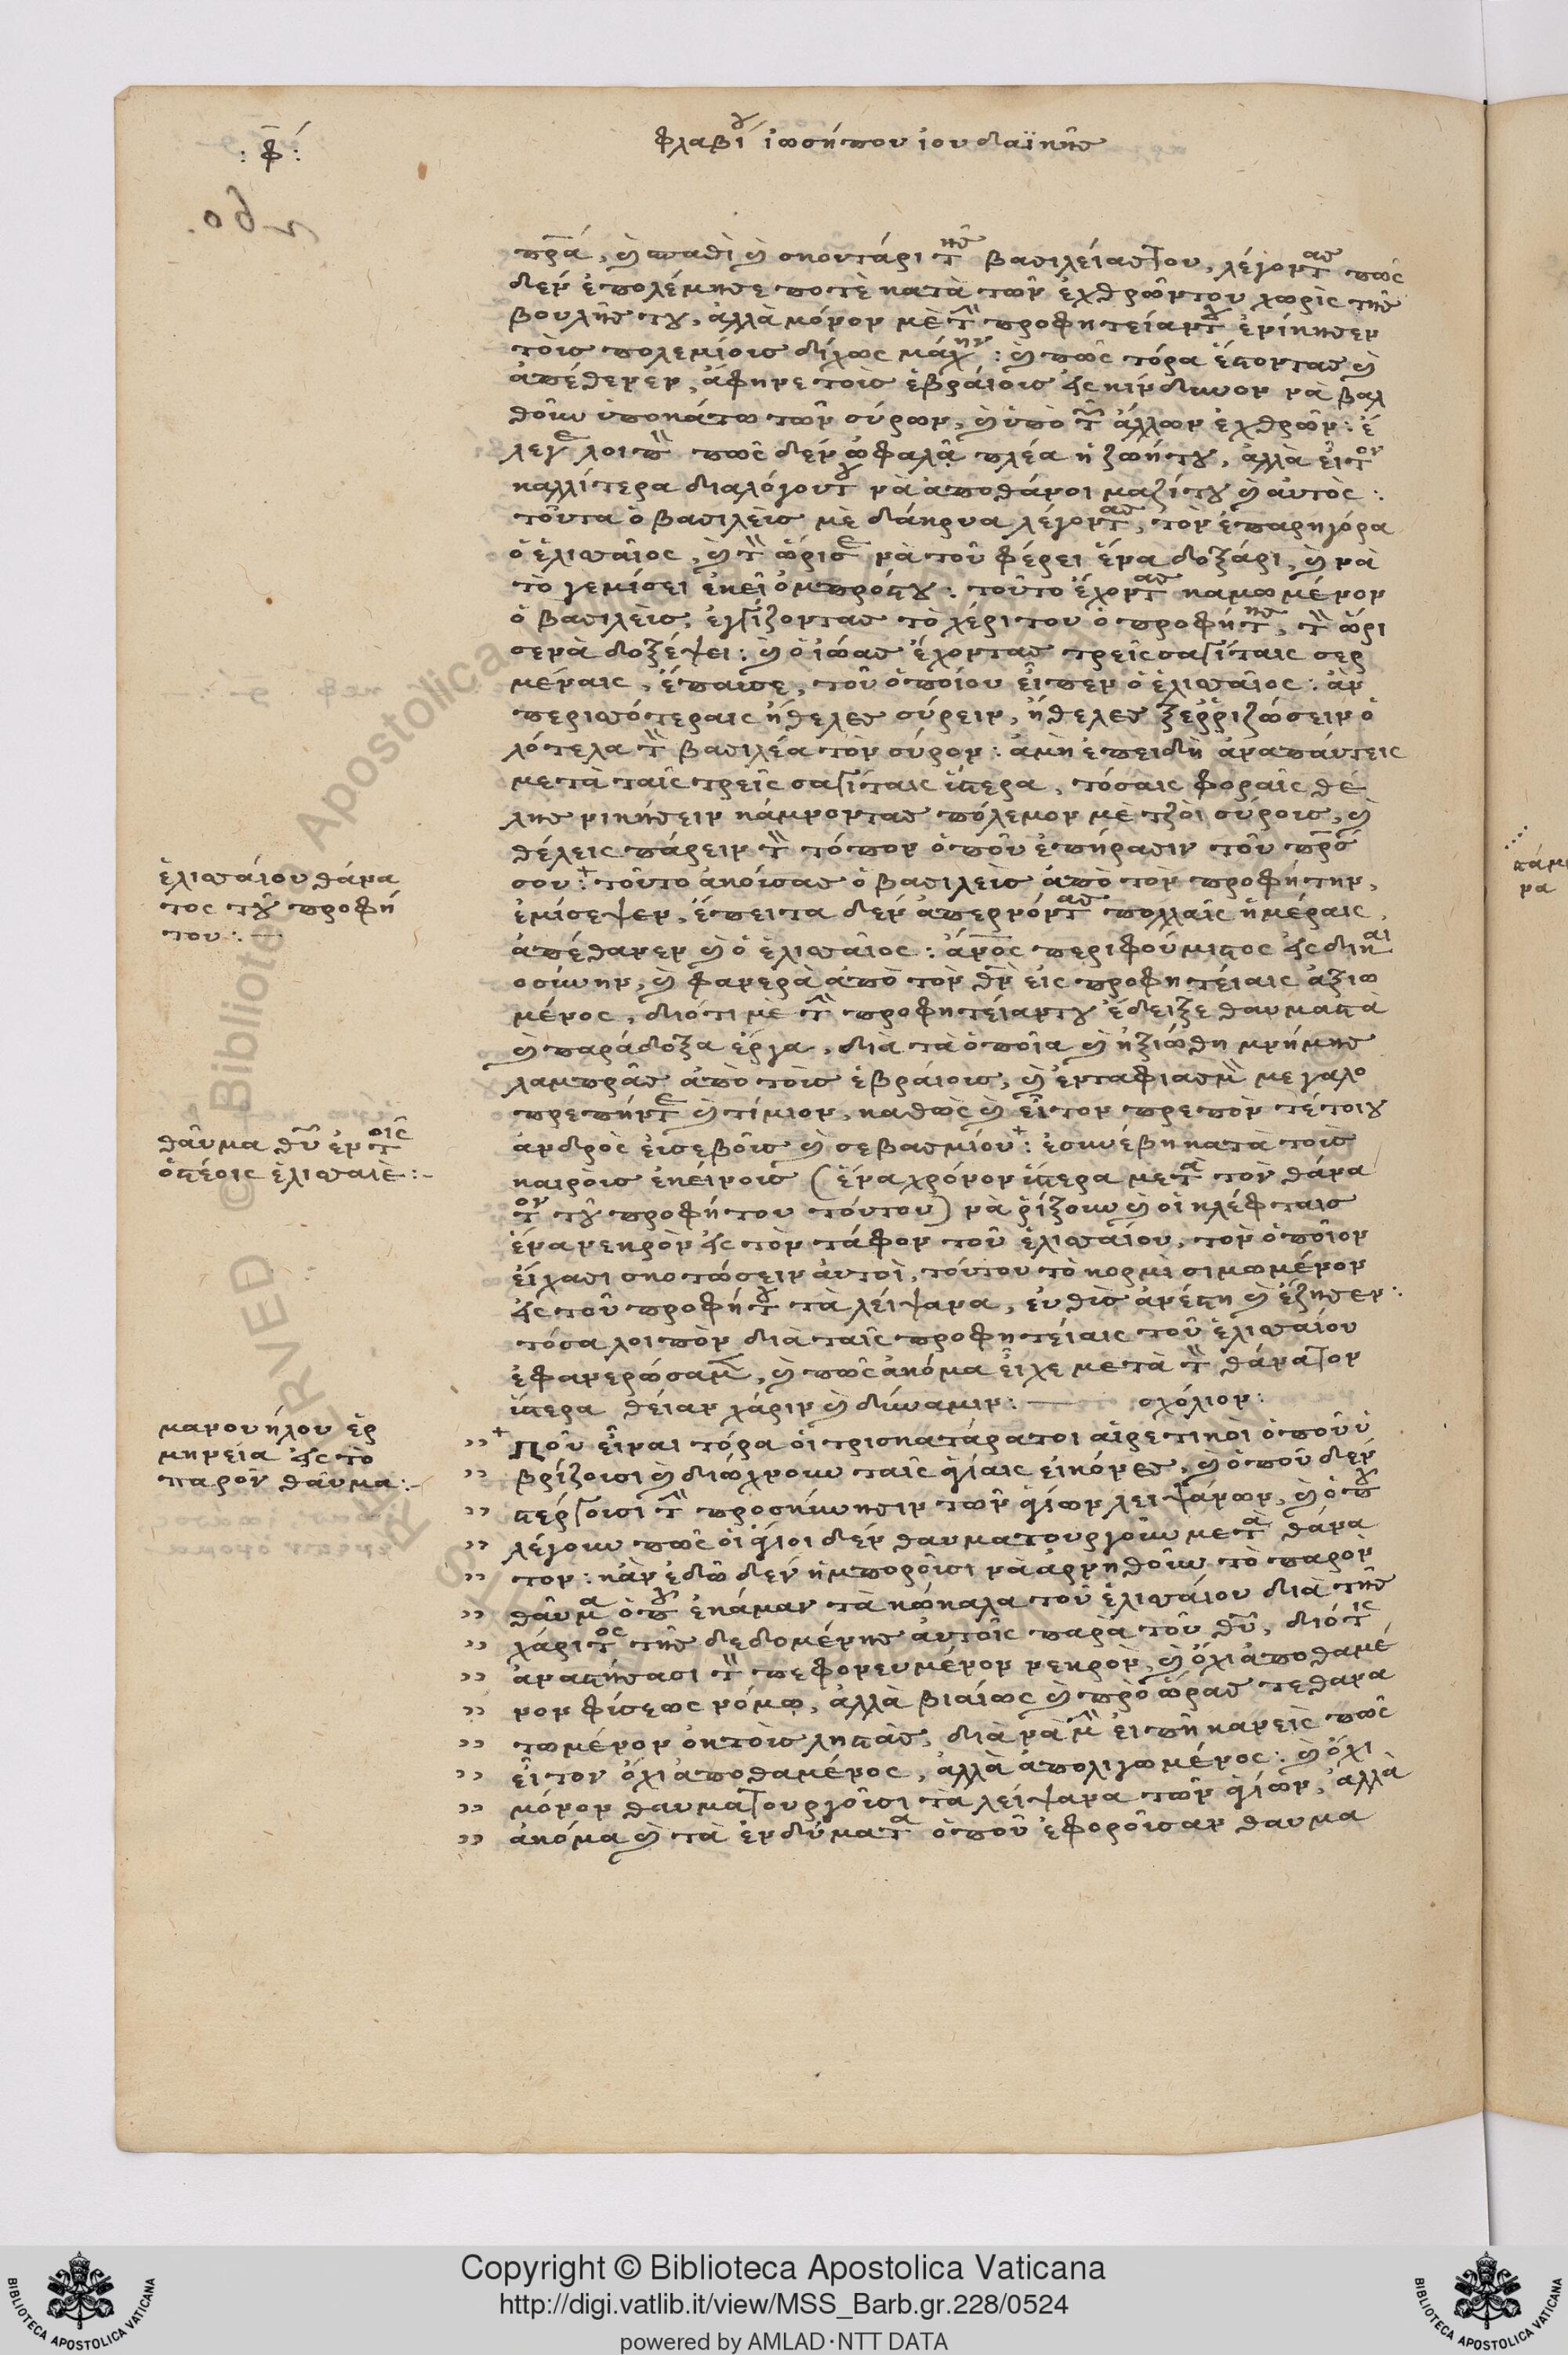 : φ :
φλαβίου ἰωσήπου ἰουδαϊκῆς
πρα, καὶ σπαθὶ καὶ σκοντάρι της βασιλείας του, λέγοντας πῶς
δὲν ἐπολέμησε ποτὲ κατὰ τῶν ἐχθρῶν του χωρὶς τῆς
βουλῆς του, ἀλλὰ μόνον μὲ τὴν προφητείαν του ἐνίκησεν
τοὶς πολεμίοις δίχως μάχην : καὶ πῶς τόρα ἔστοντας καὶ
ἀπέθενεν, ἄφηνε τοὶς ἑβραίοις εἰς κίνδυνον νὰ βαλ
θοῦν ὑποκάτω τῶν σύρων, καὶ ὑπὸ τῶν ἄλλων ἐχθρῶν : ἔ
λεγε λοιπὸν πῶς δὲν ὠφαλᾶ πλέα ἡ ζωή του, ἀλλὰ εἶτον
καλλίτερα διαλόγου του νὰ ἀποθάνοι μαζί του καὶ αὐτὸς :
τοῦτα ὁ βασιλεὶς μὲ δάκρυα λέγοντας, τὸν ἐπαρηγόρα
ὁ ἐλισσαῖος, καὶ τὸν ὥρισε νὰ τοῦ φέρει ἕνα δοξάρι, καὶ νὰ
τὸ γεμίσει ἐκεῖ ὀμπρός του : τοῦτο ἔχοντας καμωμένον
ὁ βασιλεὶς, ἐγγίζοντας τὸ χέρι του ὁ προφήτης, τὸν ὥρι
σε νὰ δοξέψει : καὶ ὁ ἰώας ἔχοντας τρεῖς σαγίταις σερ
μέναις, ἔπαισε, τοῦ ὁποίου εἶπεν ὁ ἐλισσαῖος : ἀν
περισσότεραις ἤθελες σύρειν, ἤθελες ξερριζώσειν ὁ
λότελα τὸν βασιλέα τὸν σύρον : ἀμὴ ἐπειδὴ ἀναπάυτεις
μετὰ ταῖς τρεῖς σαγίταις ὕστερα, τόσαις φοραῖς θέ
λης νικήσειν κάμνοντας πόλεμον μὲ τζοὶ σύροις, καὶ
θέλεις πάρειν τὸν τόπον ὁποῦ ἐπήρασιν τοῦ πρς
σου :+ τοῦτο ἀκούσας ὁ βασιλεὶς ἀπὸ τὸν προφήτην,
ἐμίσεψεν, ἔπειτα δὲν ἀπερνόντας πολλαῖς ἡμέραις,
ἀπέθανεν καὶ ὁ ἐλισσαῖος : ἄνος περιφούμιστος εἰς δικαι
οσύνην, καὶ φανερὰ ἀπὸ τὸν θν εἰς προφητείαις ἀξιω
μένος, διότι μὲ τὴν προφητείαν του ἔδειξε θαυμαστὰ
καὶ παράδοξα ἔργα, διὰ τὰ ὁποῖα καὶ ἠξιώθη μνήμης
λαμπρᾶς ἀπὸ τοὶς ἑβραίοις, καὶ ἐνταφιασμὸν μεγαλο
πρεπὴν τε καὶ τίμιον, καθὼς καὶ εἶτον πρεπὸν τέτοιου
ἀνδρὸς εἰσεβοῖς καὶ σεβασμίου+ : ἐσυνέβη κατὰ τοὶς
καιροὶς ἐκείνοις (ἕνα χρόνον ὕστερα μετὰ τὸν θάνα
τον τοῦ προφήτου τούτου) νὰ ῥίξουν καὶ οἱ κλέφταις
ἕνα νεκρὸν εἰς τὸν τάφον τοῦ ἐλισσαίου, τὸν ὁποῖον
εἴχασι σκοτώσειν ἀυτοὶ, τούτου τὸ κορμὶ σιμωμένον
εἰς τοῦ προφήτου τὰ λείψανα, ἐυθὶς ἀνέστη καὶ ἔζησεν :
τόσα λοιπὸν διὰ ταῖς προφητείαις τοῦ ἐλισσαίου
ἐφανερώσαμεν, καὶ πῶς ἀκόμα εἶχε μετὰ τὸν θάνατον
ὕστερα θείαν χάριν καὶ δύναμιν : — σχόλιον :
" + Ποῦ εἶναι τόρα οἱ τρισκατάρατοι αἱρετικοὶ ὁποῦ ὑ
" βρίζουσι καὶ διώχνουν ταῖς ἁγίαις εἰκόνες, καὶ ὁποῦ δὲν
" στέργουσι τὴν προσκύνησιν τῶν ἁγίων λειψάνων, καὶ ὁποῦ
" λέγουν πῶς οἱ ἅγιοι δὲν θαυματουργοῦν μετὰ θάνα
" τον : κἂν ἐδῶ δὲν ἠμποροῦσι νὰ ἀρνηθοῦν τὸ παρὸν
" θαῦμα ὁποῦ ἐκάμαν τὰ κώκαλα τοῦ ἐλισσαίου διὰ τῆς
" χάριτος τῆς δεδομένης ἀυτοῖς παρὰ τοῦ θυ, διότις
" ἀναστήσασι τὸν πεφονευμένον νεκρὸν, καὶ ὄχι ἀποθαμέ
" νον φύσεως νόμῳ, ἀλλὰ βιαίως καὶ πρὸ ὥρας τεθανα
" τωμένον ἐκ τοὶς ληστὰς, διὰ νὰ μὴν εἰπῆ κανεὶς πῶς
" εἶτον ὄχι ἀποθαμένος, ἀλλὰ ἀπολιγωμένος : καὶ ὄχι
" μόνον θαυματουργοῦσι τὰ λείψανα τῶν ἁγίων, ἀλλὰ
" ἀκόμα καὶ τὰ ἐνδύματα ὁποῦ ἐφοροῦσαν θαυμα
ἐλισσαίου θάνα
τος τοῦ προφή
του : —
θαῦμα θυ ἐν τοῖς
ὀστέοις ἐλισσαιὲ : -
μανουήλου ἑρ
μηνεία εἰς τὸ
παρὸν θαῦμα : -
Copyright © Biblioteca Apostolica Vaticana
http://digi.vatlib.it/view/MSS_Barb.gr.228/0524
powered by AMLAD·NTT DATA
BIBLIOTECA APOSTOLICA VATICANA
BIBLIOTECA APOSTOLICA VATICANA